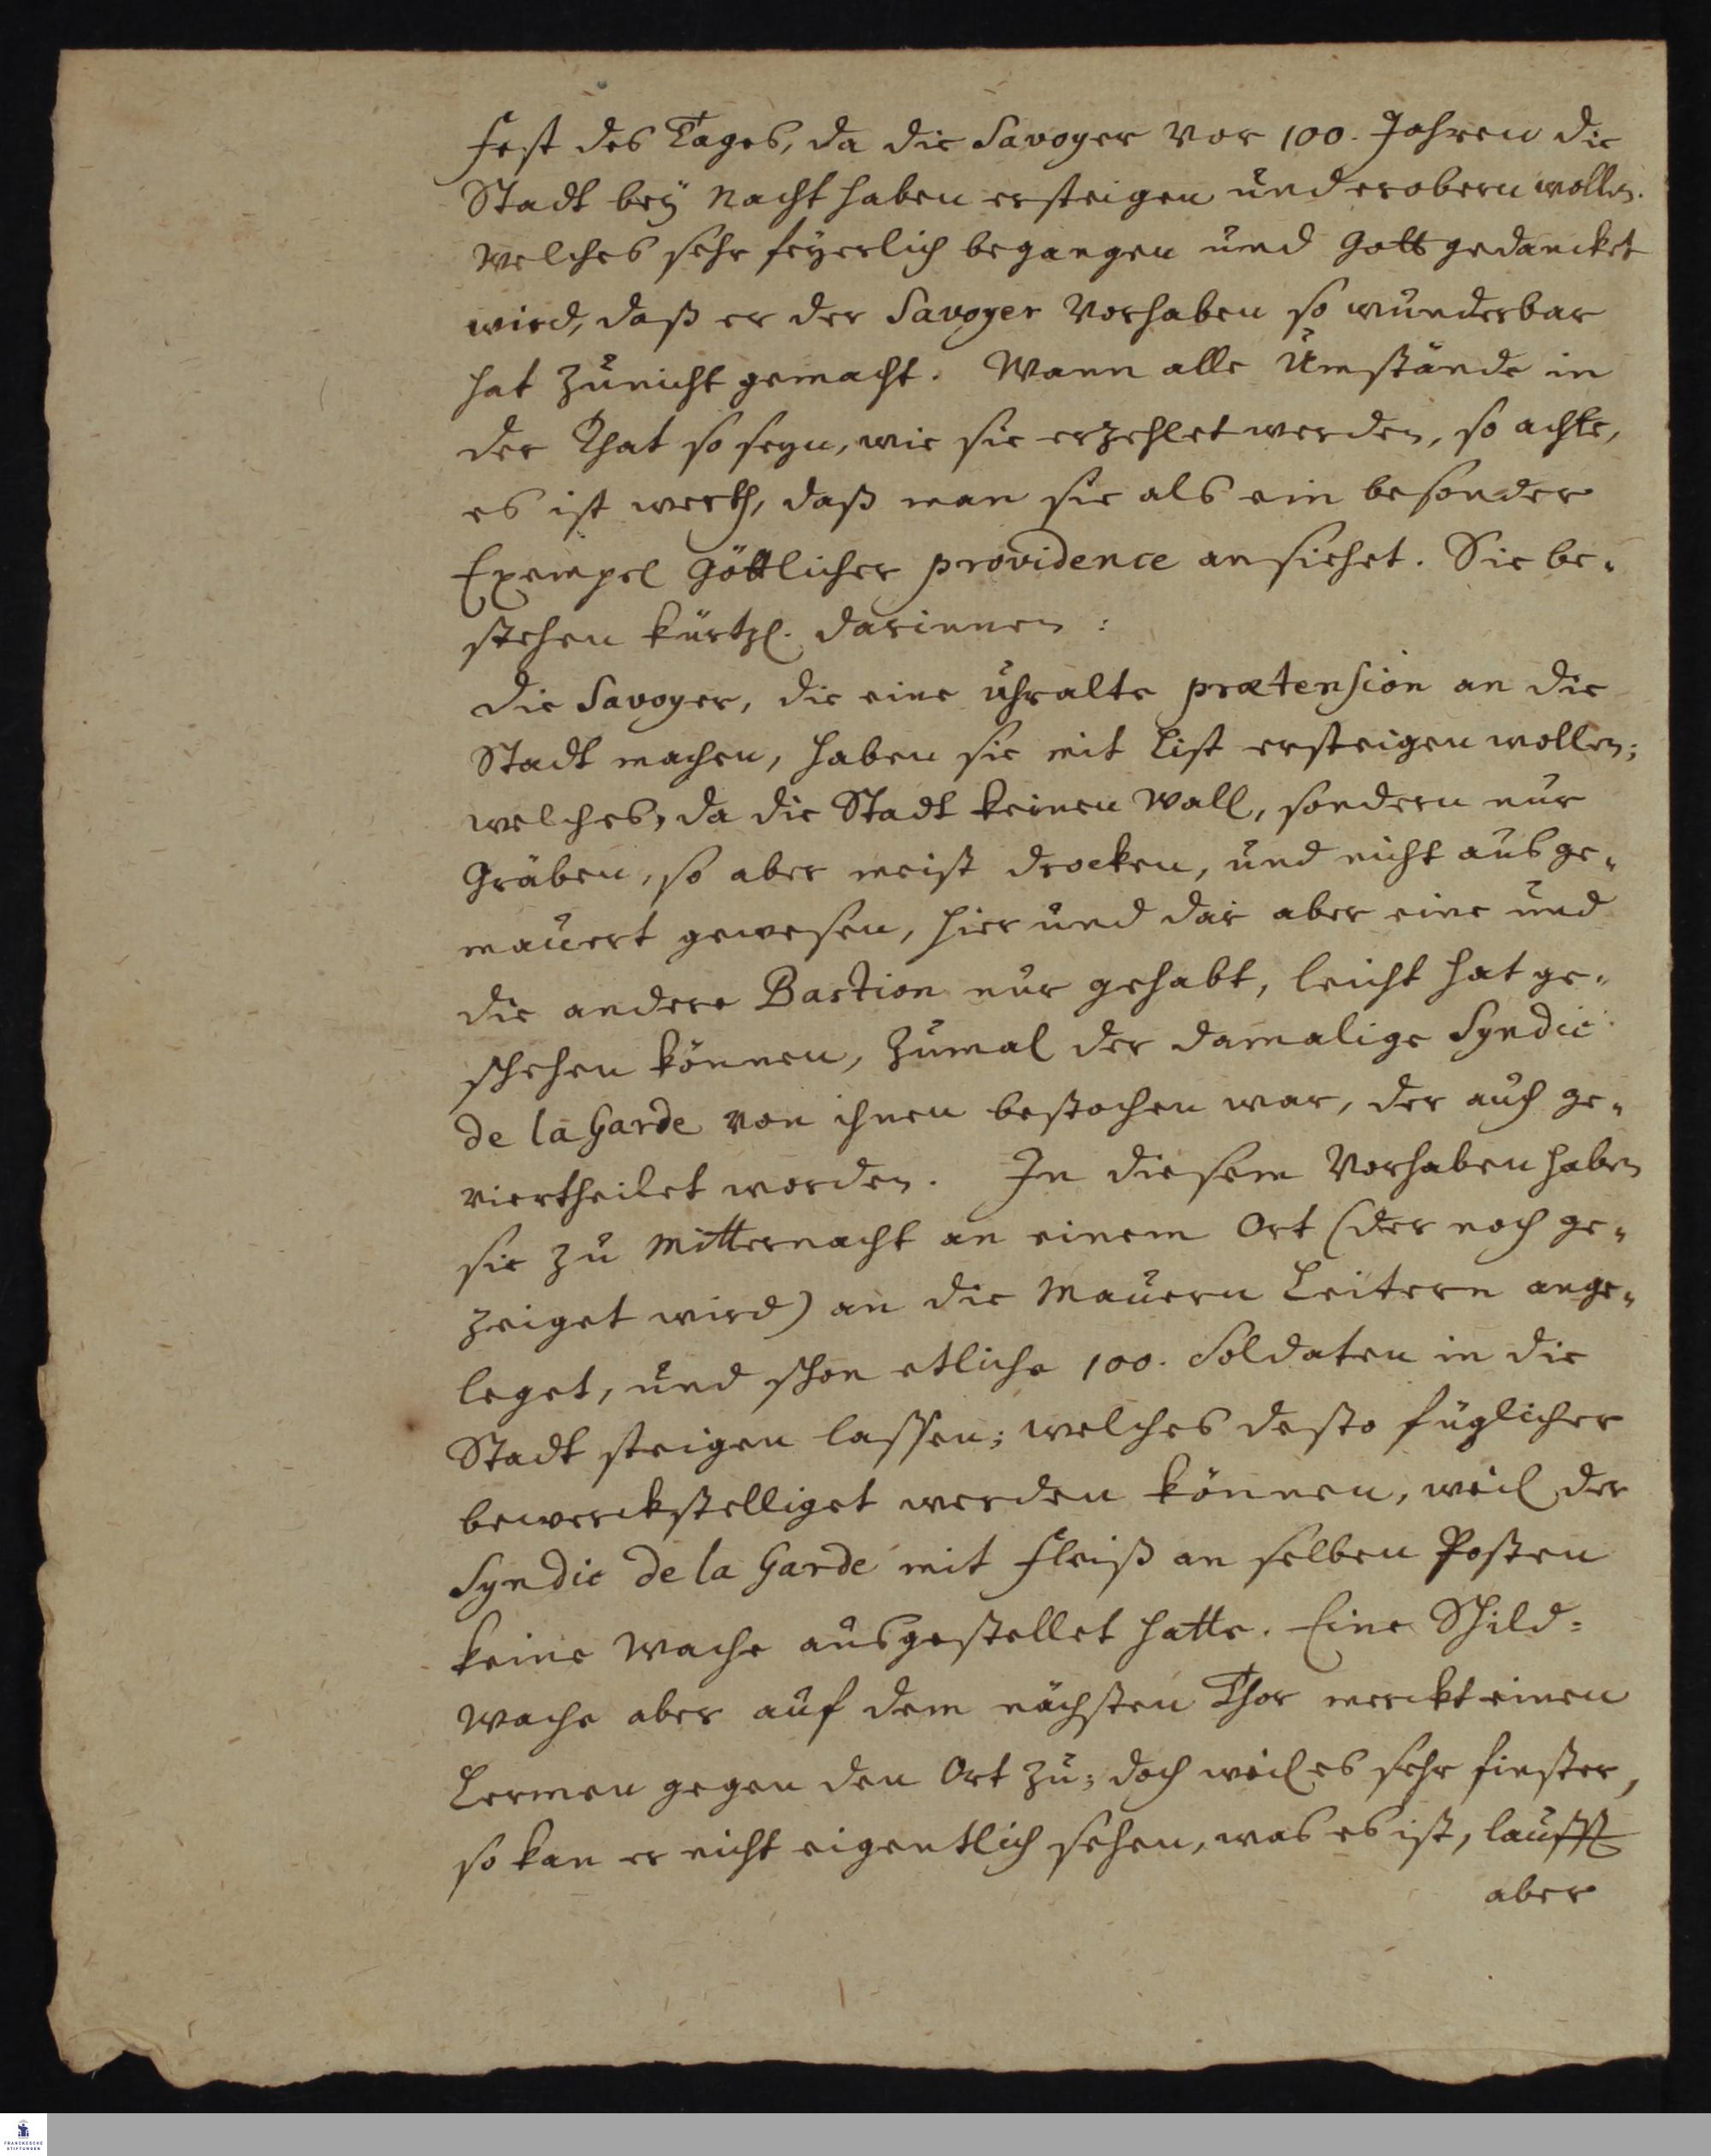 Fest des Tages, da die Savoyer vor 100. Jahren die
Stadt bey Nacht haben ersteigen und erobern wollen.
Welches sehr feyerlich begangen und Gott gedancket
wird, daß er der Savoyer Vorhaben so wunderbar
hat zunicht gemacht. Wann alle Umstände in
der That so seyn, wie sie erzehlet werden, so achte,
es ist werth, daß man sie als ein besonder
Exempel Göttlicher providence ansiehet. Sie be-
stehen kürtzl. darinnen:
Die Savoyer, die eine uhralte prætension an die
Stadt machen, haben sie mit List ersteigen wollen;
welches, da die Stadt keinen Wall, sondern nur
Gräben, so aber meist drocken, und nicht ausge-
mauert gewesen, hier und dar aber eine und
die andere Bastion nur gehabt, leicht hat ge-
schehen können, zumal der damalige Syndic
de la Garde von ihnen bestochen war, der auch ge-
viertheilet worden. In diesem Vorhaben haben
sie zu Mitternacht an einem Ort (der noch ge-
zeiget wird) an die Mauern Leitern ange-
leget, und schon etliche 100. Soldaten in die
Stadt steigen lassen; welches desto füglicher
bewerckstelliget werden können, weil der
Syndic de la Garde mit Fleiß an selben Posten
keine Wache ausgestellet hatte. Eine Schild-
Wache aber auf dem nächsten Thor merckt einen
Lermen gegen den Ort zu; doch weil es sehr finster,
so kan er nicht eigentlich sehen, was es ist, laufft
aber
FRANCKESCHE
STIFTUNGEN